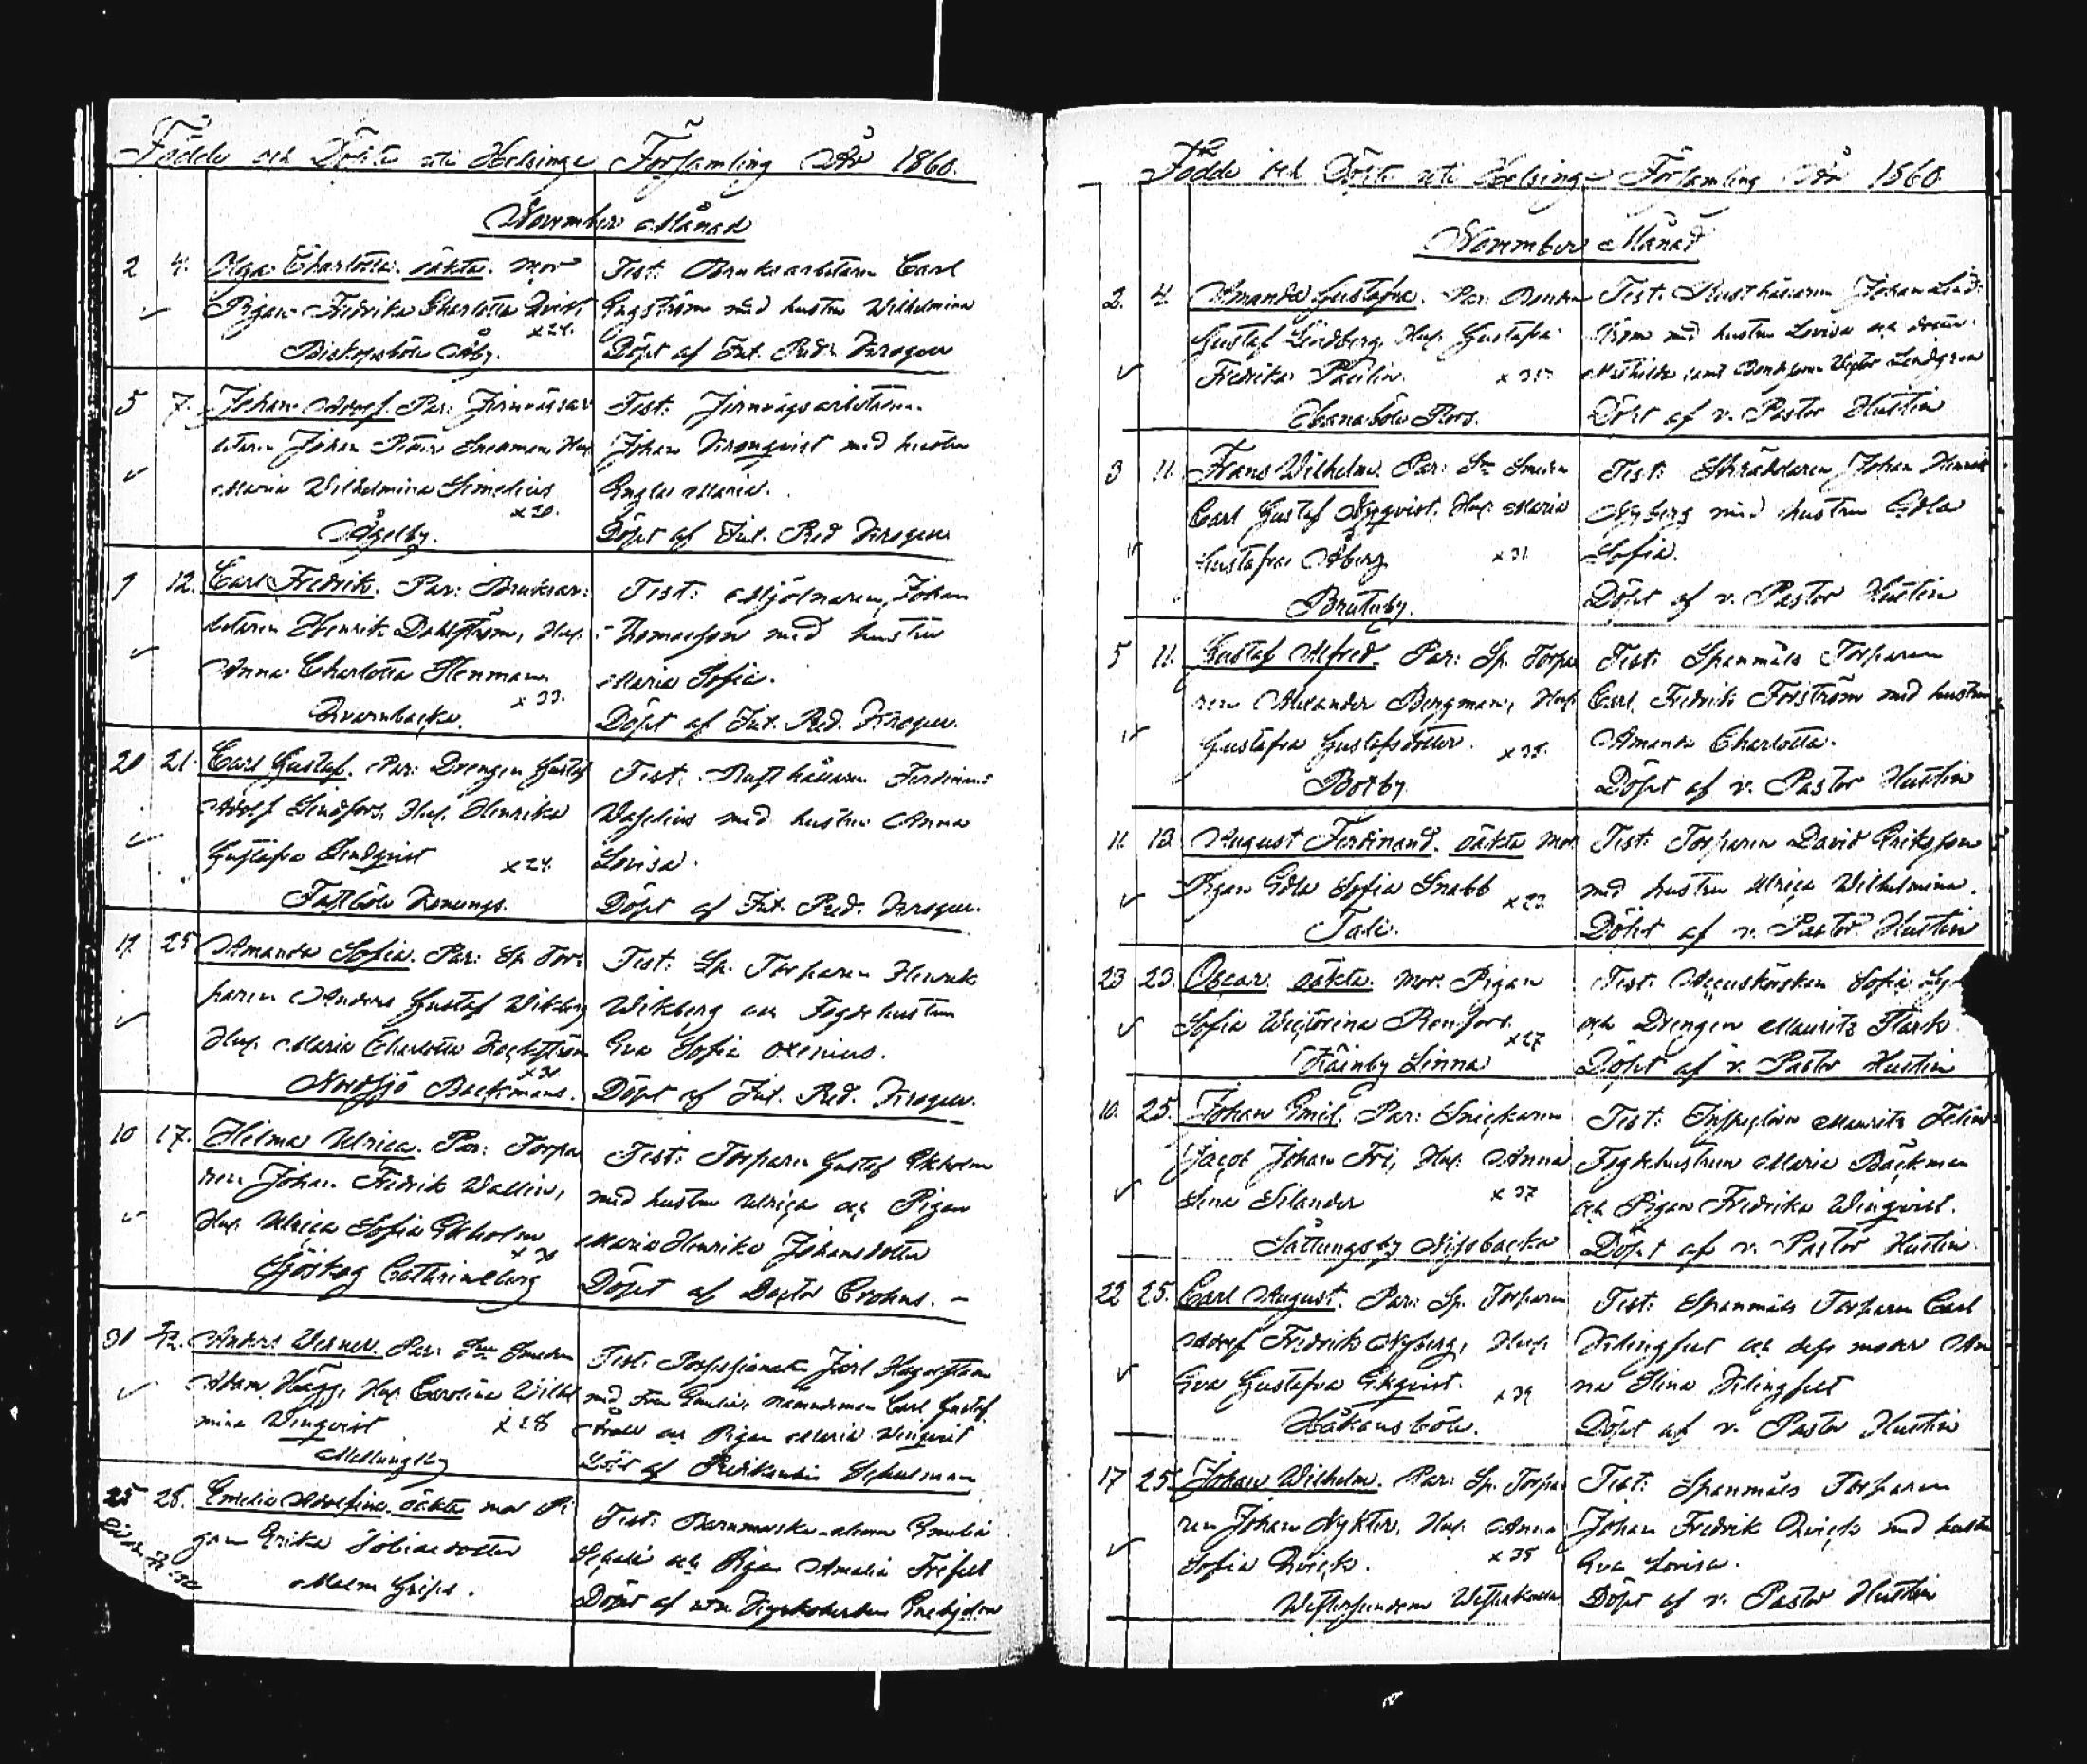 Födde och Döpte uti Helsinge Församling År 1860.
November Månad
2 4. Olga Charlotta. oäkta. Mor
Pigan Fredrika Charlotta Qvick
x 24.
Biskopsböle Åby.
Test: Bruksarbetaren Carl
Engström med hustru Wilhelmina
Döpt af Int. Pred. Krogell
5 7. Johan Adolf. Par: Jernvägsar
betaren Johan Petter Snekman, Hus.
Maria Wilhelmina Simelius
x 20.
Ågelby.
Test: Jernvägsarbetaren
Johan Kronqvist med hustru
Engla Maria.
Döpt af Int. Pred Krogell
9 12. Carl Fredrik. Par: Bruksar:
betaren Henrik Dahlström, Hus.
Anna Charlotta Stenman.
x 33.
Qvarnbacka.
Test: Mjölnaren, Johan
Thomasson med hustru
Maria Sofia.
Döpt af Int. Pred. Krogell.
20 21. Carl Gustaf. Par: Drengen Gustaf
Adolf Lindfors, Hus. Henrika
Gustafva Lindqvist x 24.
Fastböle Konungs.
Test: Rusthållaren Ferdinand
Waselius med hustru Anna
Lovisa.
Döpt af Int. Pred. Krogell.
19. 25 Amanda Sofia. Par: Sp. Tor:
paren Anders Gustaf Wikberg
Hus. Maria Charlotta
x 31.
Nordsjö Backmans.
Test: Sp. Torparen Henrik
Wikberg och Fogdehustrun
Eva Sofia Oxenius.
Döpt af Int. Pred. Krogell.
10 17. Hilma Ulrica. Par: Torpa
ren Johan Fredrik Wallin,
Hus. Ulrica Sofia Ekholm
Sjöskog Cathrineberg
Test: Torparen Gustaf Ekholm
med hustru Ulrica och Pigan
Maria Henrika Johansdotter
Döpt af Doctor Crohns. –
30 Anders Verner. Par: Smeden
Adam Hägg, Hus. Carolina Wilhel
mina Winqvist x 28
Mellungsby
Test: Possessionaten Jarl Hagelstam
med Fru Emilie, nämndeman Carl Gustaf
och Pigan Maria Winqvist
Döpt af Predikanten Schulman
25 28. Emelie Adolfina. oäkta mor Pi
gan Erika Tobiasdotter
Malm Grips.
Test: Barnmorske-eleven Emelie
och Pigan Amalia
Döpt af
Födde och Döpte uti Helsinge Församling År 1860
November Månad
2. 4. Amanda Gustafva. Par: Bonden
Gustaf Lindberg, Hus. Gustafva
Fredrika Paulin.
Hanaböle Flors.
Test: Rusthållaren Johan Lind:
ström med hustru Lovisa och dotter
Mathilda samt Bondsonen Victor Lindgren
Döpt af v. Pastor Hustin
3 11. Frans Wilhelm. Par: Smeden
Carl Gustaf Nyqvist, Hus. Maria
Gustafva Åberg x 31
Brutuby.
Test: Skräddaren Johan Henrik
Nyberg med hustru Edla
Sofia.
Döpt af v. Pastor Hustin
5 11. Gustaf Alfred. Par: Sp. Torpa
ren Alexander Bergman, Hus.
Gustafva Gustafsdotter. x 35.
Botby
Test: Spanmåls Torparen
Carl Fredrik Forström med hustrun
Amanda Charlotta.
Döpt af v. Pastor Hustin
11. 13. August Ferdinand. oäkta Mor
Pigan Edla Sofia Snabb x 23.
Tali.
Test: Torparen David Eriksson
med hustru Ulrica Wilhelmina.
Döpt af v. Pastor Hustin
23 23. Oscar. oäkta. Mor: Pigan
Sofia Wictorina Renfors.
x 27
Kårby Linna
Test: Sofia
och Drengen Maurits Stark
Döpt af v. Pastor Hustin
10. 25. Johan Emil. Par: Snickaren
Jacob Johan Fri, Hus. Anna
Lina Silander x 37
Sottungsby Nissbacka
Test: Inspectoren Maurits Felin
Fogdehustrun Maria Bäckman
och Pigan Fredrika Winqvist.
Döpt af v. Pastor Hustin.
22 25. Carl August. Par: Sp. Torparen
Adolf Fredrik Nyberg, Hus.
Eva Gustafva Ekqvist. x 34
Håkansböle.
Test: Spanmåls Torparen Carl
och dess moder An
na Stina
Döpt af v. Pastor Hustin
17 25. Johan Wilhelm. Par: Sp. Torpa:
ren Johan Nykter, Hus. Anna
Sofia Qvick. x 35
Westersundom
Test: Spanmåls Torparen
Johan Fredrik Qvick med hustru
Eva Lovisa.
Döpt af v. Pastor Hustin